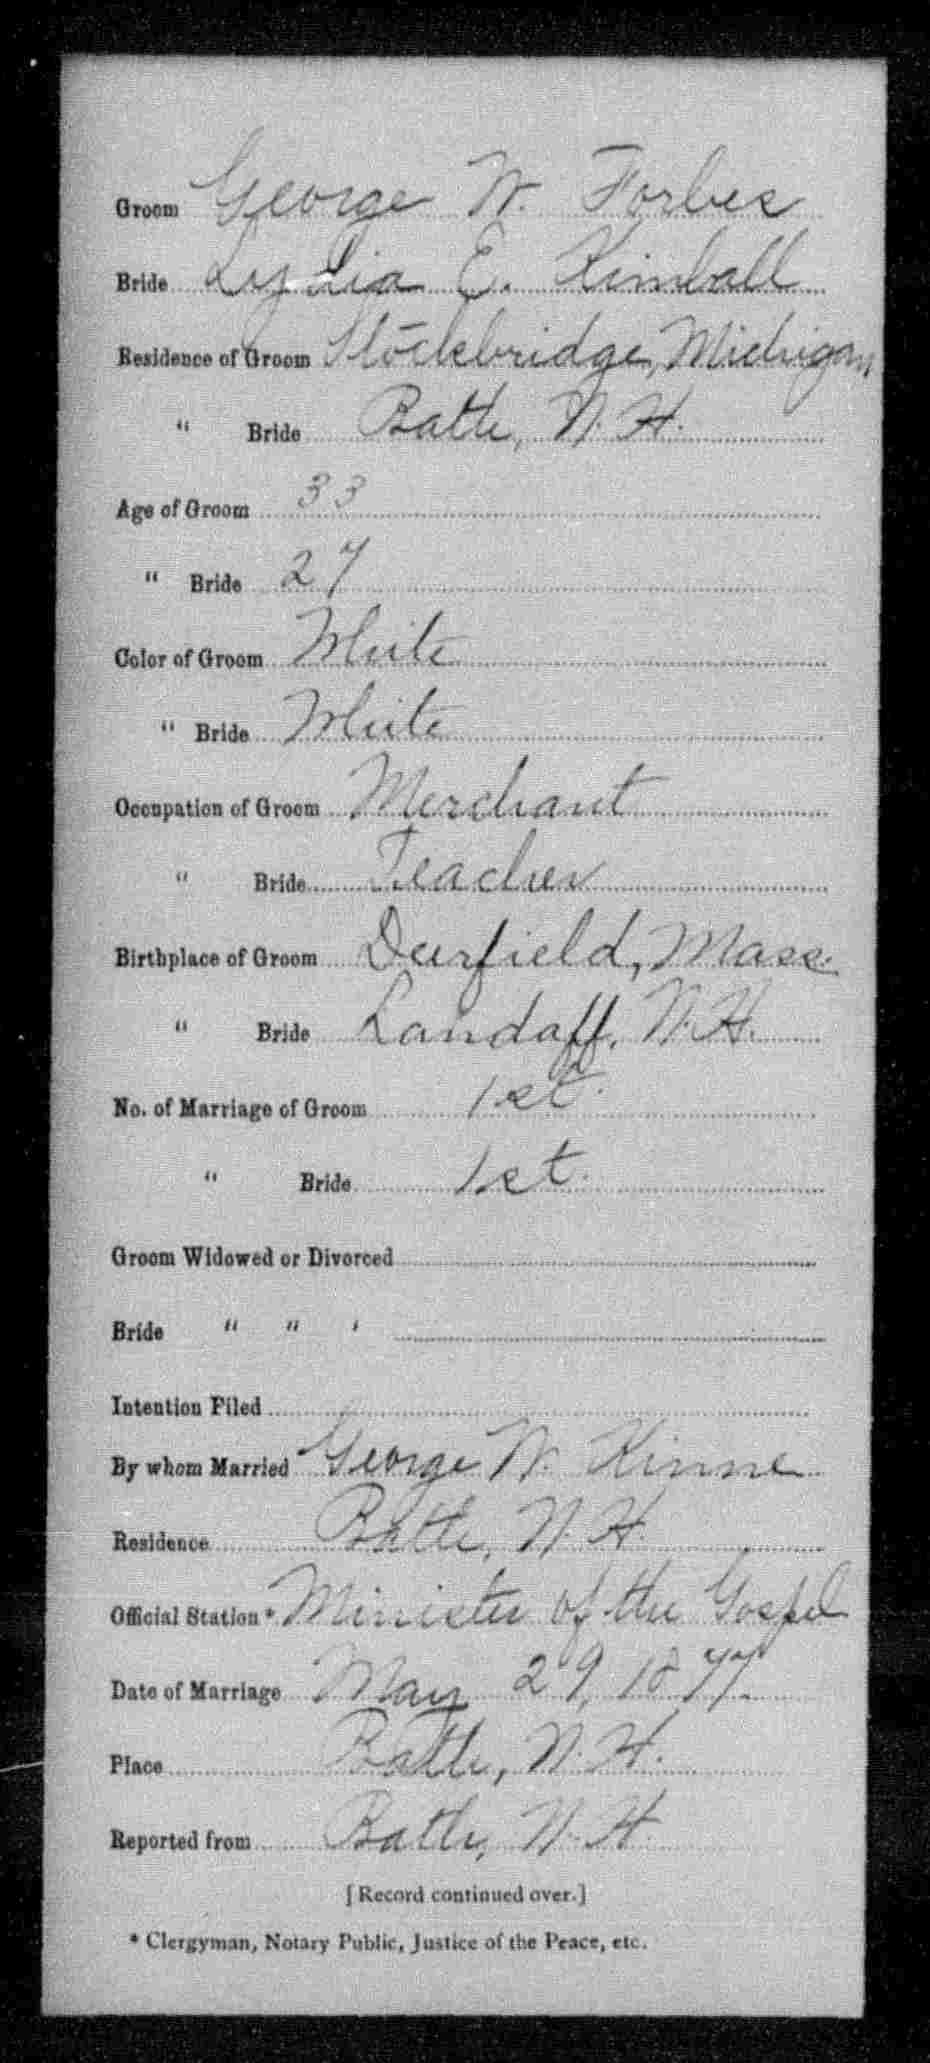 Groom George W. Forbes
Bride Lydia E. Kimball
Residence of Groom Stockbridge, Michigan
" Bride Bath, N. H.
Age of Groom 33
" Bride 27
Color of Groom White
" Bride White
Occupation of Groom Merchant
" Bride Teacher
Birthplace of Groom Deerfield, Mass.
" Bride Landaff, N. H.
No. of Marriage of Groom 1st.
" Bride 1st.
Groom Widowed or Divorced
Bride " " '
Intention Filed
By whom Married George W. Kinne
Residence Bath, N. H.
Official Station* Minister of the Gospel
Date of Marriage May 29, 1877.
Place Bath, N. H.
Reported from Bath, N. H.
[Record continued over.]
* Clergyman, Notary Public, Justice of the Peace, etc.